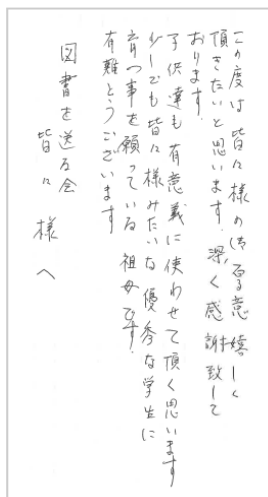 この度は皆々様の御厚意嬉しく
頂きたいと思います。深く感謝致して
おります。
子供達も有意義に使わせて頂く思います
少しでも皆々様みたいな優秀な学生に
育つ事を願っている祖母です。
有難とうございます
図書を送る会
皆々様へ